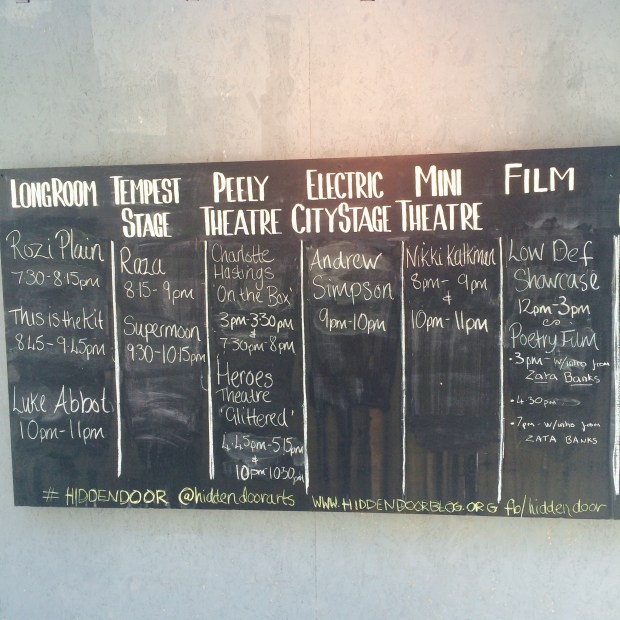 LONGROOM
Rozi Plain
7:30-8:15pm
This is the Kit
8:45-9:45pm
Luke Abbot
10pm-11pm
TEMPEST
STAGE
Raza
8:15-9pm
Supermoon
9:30-10:15pm
PEELY
THEATRE
Charlotte
Hastings
'On the Box'
3pm-3:30pm
&
7:30pm-8pm
Heroes
Theatre
'Glittered'
4:45pm-5:15pm
&
10pm-10:30pm
ELECTRIC
CITY STAGE
Andrew
Simpson
9pm-10pm
MINI
THEATRE
Nikki Kalkman
8pm-9pm
&
10pm-11pm
FILM
Low Def
Showcase
12pm-3pm
Poetry Film
• 3pm - w/intro from
ZATA Banks
• 4:30pm
• 7pm - w/intro from
ZATA BANKS
# HIDDENDOOR @hiddendoorarts WWW.HIDDENDOORBLOG.ORG fb/hiddendoor